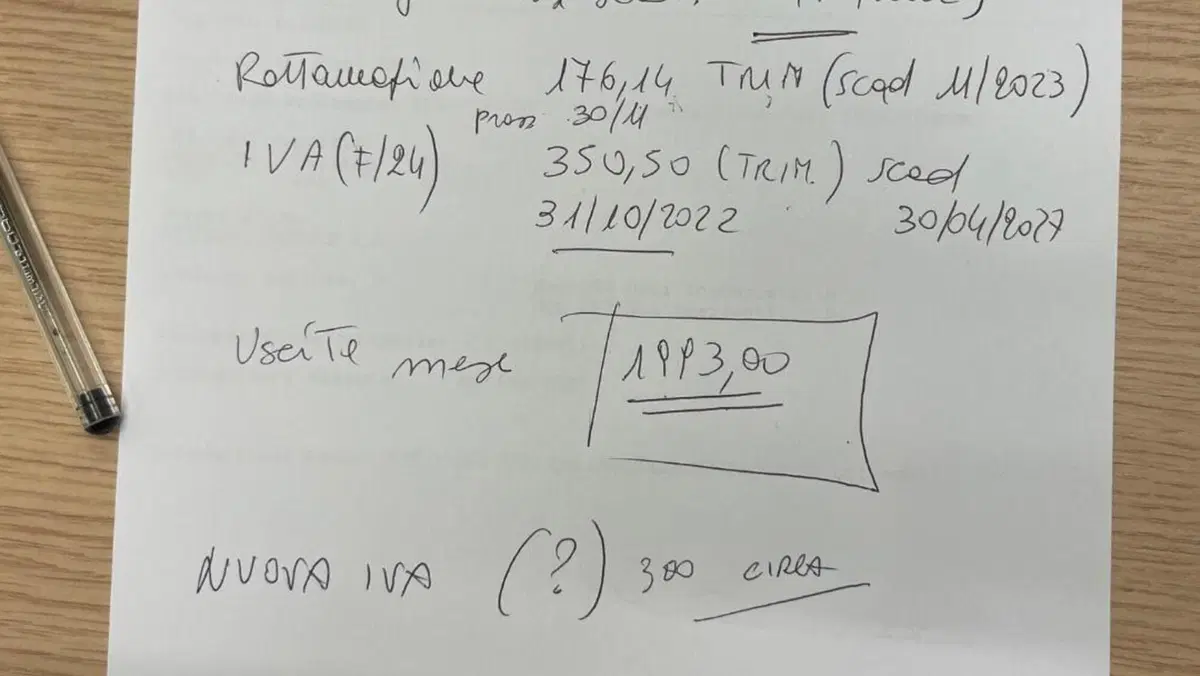 Rottamazione 176,14 TRIM (scad 11/2023)
pross 30/11
IVA (7/24) 350,50 (TRIM.) scad
31/10/2022 30/04/2027
Uscite mese 1993,00
NUOVA IVA (?) 300 CIRCA